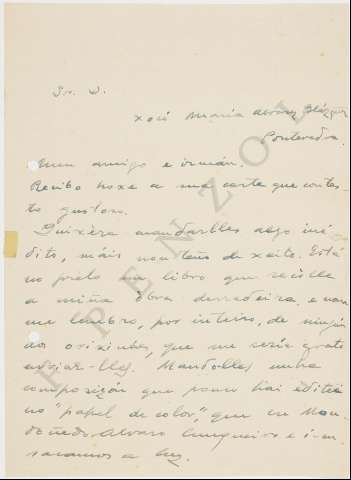 Sr. D.
Xosé María Alvarez Blázquez
Pontevedra.
Meu amigo e irmán:
Recibo hoxe a sua carta que contes-
to gustoso.
Quixera mandarlles algo iné
dito, máis non teño de xeito. Está
no prelo un libro que recolle
a miña obra derradeira, e non
me lembro, por inteiro, de ningún
dos orixinás, que me sería grato
enviar-lles. Mandolles unha
composizón que pouco hai editei
no "papel de color", que en Mon-
doñedo Alvaro Cunqueiro e eu
sacamos a luz.
PENZOL